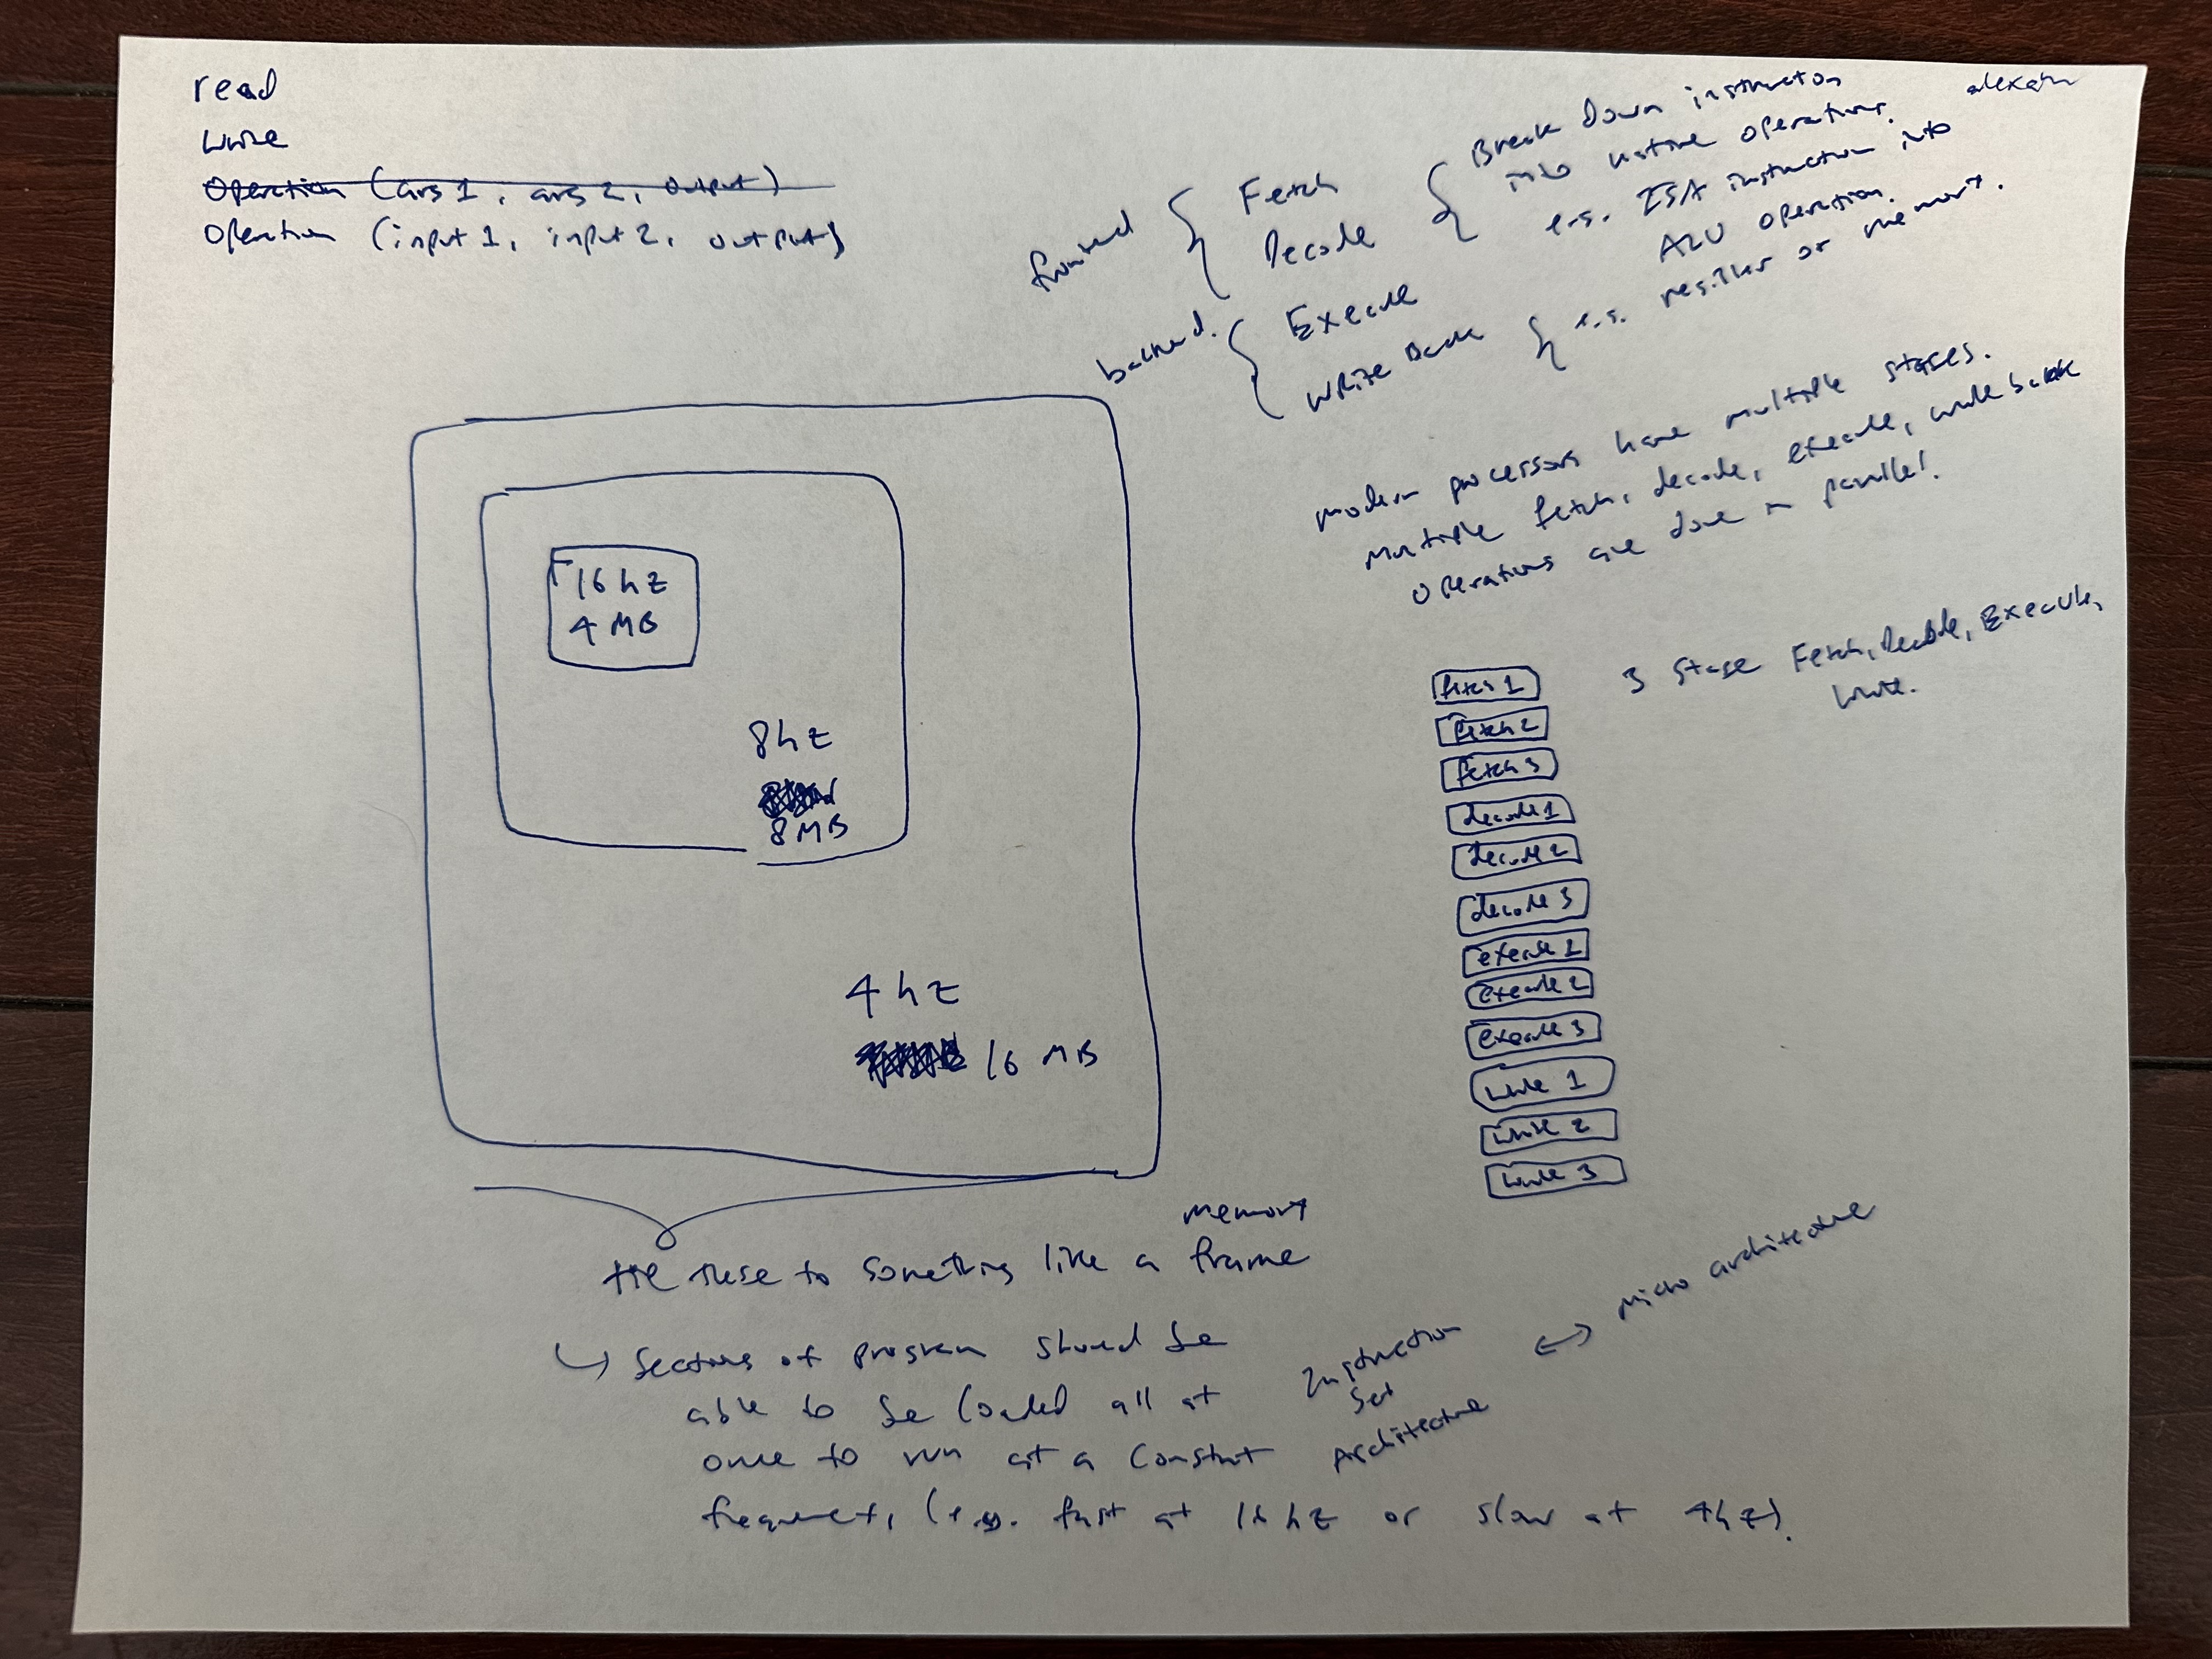 read
write
Operation (args 1, args 2, output)
Operation (input 1, input 2, output)
frontend
Fetch
Decode
Break Down instruction
into native operations.
e.g. ISA instruction into
ALU operation.
backend.
Execute
Write Back
e.g. register or memory.
modern processors have multiple stages.
Multiple fetch, decode, execute, write back
operations are done in parallel.
3 stage Fetch, Decode, Execute,
write.
fetch 1
fetch 2
fetch 3
decode 1
decode 2
decode 3
execute 1
execute 2
execute 3
write 1
write 2
write 3
16 hz
4 MB
8 hz
8 MB
4 hz
16 MB
memory
tie these to something like a frame
↳ Sections of program should be
able to be loaded all at
once to run at a constant
frequency, (e.g. fast at 16 hz or slow at 4hz).
Instruction
Set
Architecture
↔ micro architecture